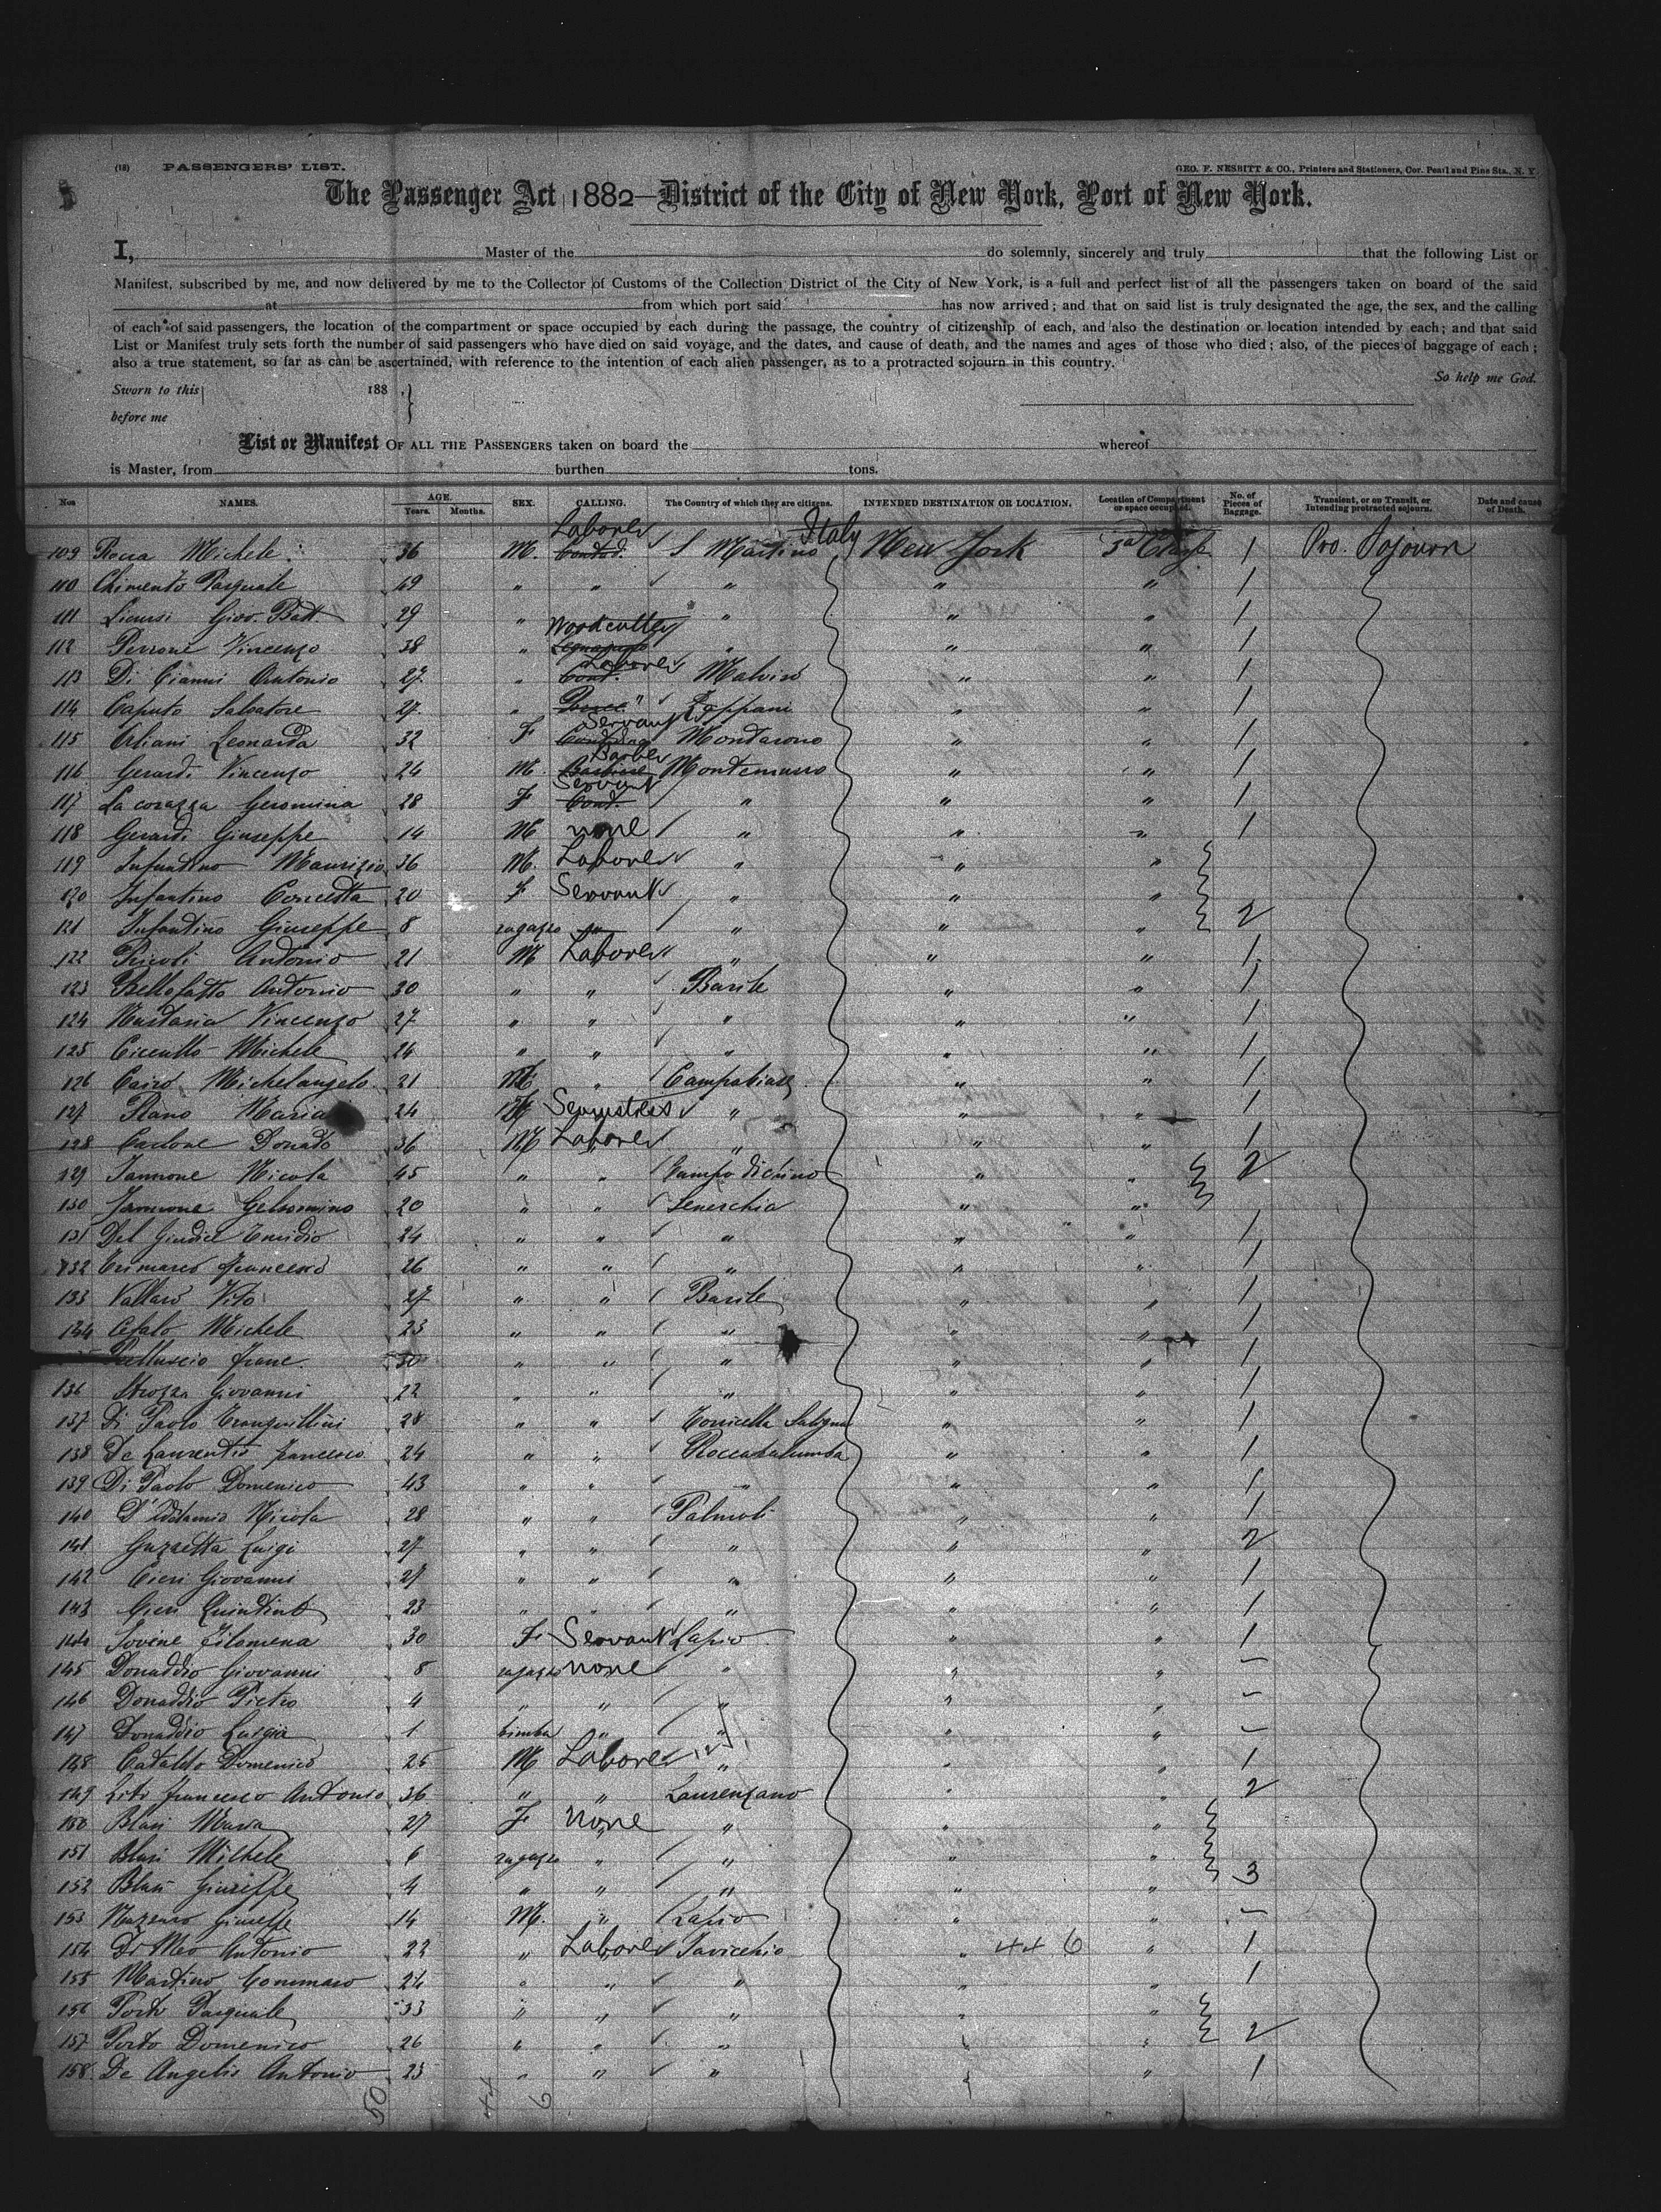 (18) PASSENGERS' LIST.
GEO. F. NESBITT & CO., Printers and Stationers, Cor. Pearl and Pine Sts., N. Y.
The Passenger Act 1882—District of the City of New York, Port of New York.
I, Master of the do solemnly, sincerely and truly that the following List or
Manifest, subscribed by me, and now delivered by me to the Collector of Customs of the Collection District of the City of New York, is a full and perfect list of all the passengers taken on board of the said
at from which port said has now arrived; and that on said list is truly designated the age, the sex, and the calling
of each of said passengers, the location of the compartment or space occupied by each during the passage, the country of citizenship of each, and also the destination or location intended by each; and that said
List or Manifest truly sets forth the number of said passengers who have died on said voyage, and the dates, and cause of death, and the names and ages of those who died; also, of the pieces of baggage of each;
also a true statement, so far as can be ascertained, with reference to the intention of each alien passenger, as to a protracted sojourn in this country.
So help me God.
Sworn to this 188 .
before me
List or Manifest OF ALL THE PASSENGERS taken on board the whereof
is Master, from burthen tons.
Nos NAMES. AGE. Years. Months. SEX. CALLING. The Country of which they are citizens. INTENDED DESTINATION OR LOCATION. Location of Compartment or space occupied. No. of Pieces of Baggage. Transient, or on Transit, or Intending protracted sojourn. Date and cause of Death.
Laborer Italy
109 Rocca Michele 36 M. Contad. S Martino New York 3d Class 1 Pro. Sojourn
110 Chimento Pasquale 49 " " " " " 1
111 Giov. Batt. 29 " " " " 1
Woodcutter
112 Perrone Vincenzo 38 " " " " 1
Laborer
113 Di Gianni Antonio 27 " Cont. Malvito " " 1
114 Caputo Salvatore 27 " " Zappani " " 1
Servant
115 Leonarda 32 F Contadina " " 1
Barber
116 Gerardi Vincenzo 24 M. Barbiere Montemurro " " 1
Servant
117 La corazza Geromina 28 F Cont. " " " 1
118 Gerardi Giuseppe 14 M none " " " 1
119 Infantino Maurizio 36 M. Laborer " " "
120 Infantino Concetta 20 F Servant " " "
121 Infantino Giuseppe 8 ragazzo " " " 2
122 Antonio 21 M Laborer " " " 1
123 Bellofatto Antonio 30 " " Barile " " 1
124 Vincenzo 27 " " " " " 1
125 Michele 24 " " " " " 1
126 Cairo Michelangelo 21 M " " " 1
127 Piano Maria 24 F Seamstress " " " 1
128 Carlone Donato 36 M Laborer " " " 1
129 Iannone Nicola 45 " " " " 2
130 Iannone Gelsomino 20 " " Senerchia " "
131 Del Giudice Emidio 24 " " " " " 1
132 Trimarco Francesco 26 " " " " " 1
133 Vallaro Vito 27 " " Barile " " 1
134 Cefalo Michele 23 " " " " " 1
Franc. 30 " " " " " 1
136 Strozza Giovanni 22 " " " " " 1
137 Di Paolo 28 " " Torricella " " 1
138 De Laurentis Francesco 24 " " " " 1
139 Di Paolo Domenico 43 " " " " " 1
140 D'Addamio Nicola 28 " " Palmoli " " 1
141 Guzzetta Luigi 27 " " " " " 2
142 Cieri Giovanni 27 " " " " " 1
143 Cieri Quintino 23 " " " " " 1
144 Iovine Filomena 30 F. Servant Lapio " " 1
145 Donaddio Giovanni 8 ragazzo none " " " –
146 Donaddio Pietro 4 " " " " " –
147 Donaddio Luigia 1 bimba " " " " –
148 Cataldo Domenico 25 M Laborer " " " 1
149 Francesco Antonio 36 " " Laurenzano " " 2
150 Blasi Maria 27 F none " " "
151 Blasi Michele 6 ragazzo " " " " 3
152 Blasi Giuseppe 4 " " " " "
153 Giuseppe 14 M. " Lapio " " –
154 Di Meo Antonio 22 " Laborer " 44 6 " 1
155 Martino Tommaso 24 " " " " " 1
156 Porto Pasquale 33 " " " " "
157 Porto Domenico 26 " " " " " 2
158 De Angelis Antonio 25 " " " " " 1
50 44 6